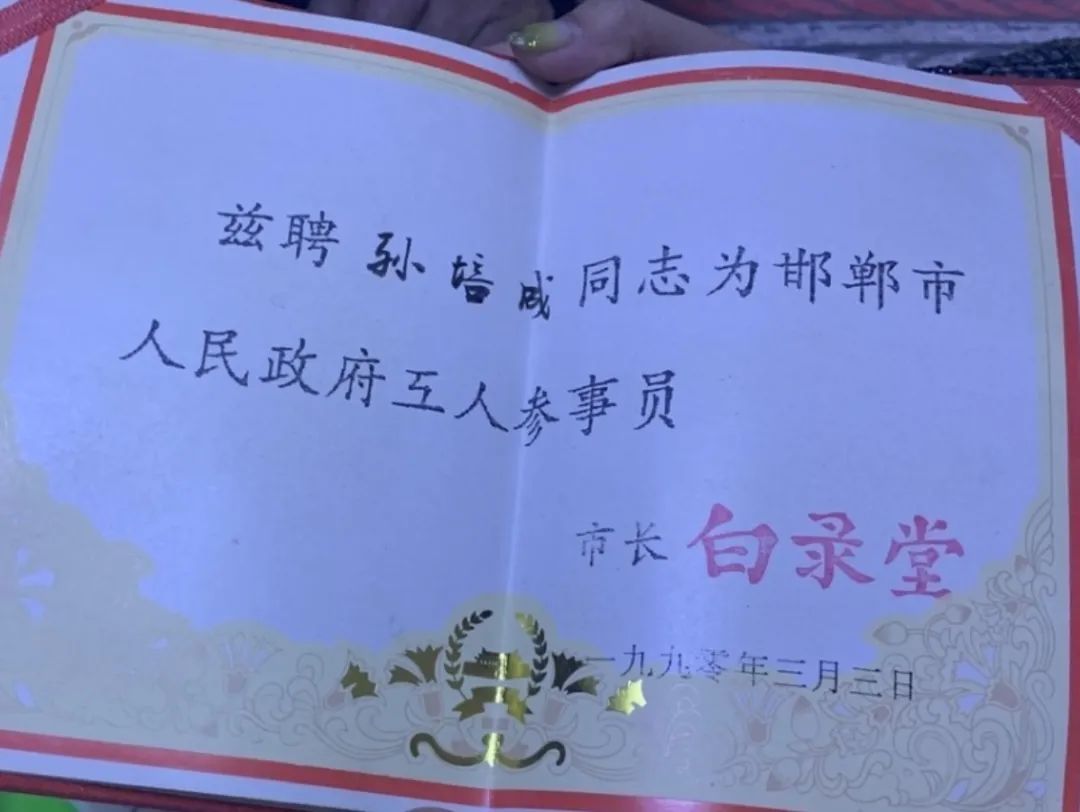 兹聘孙培成同志为邯郸市
人民政府工人参事员
市长 白录堂
一九九零年三月三日